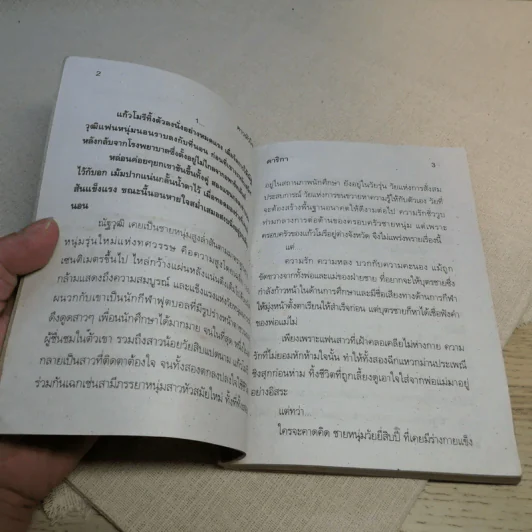 2
1...
แก้วโมรีทิ้งตัวลงนั่งอย่างหมดแรง เมื่อ
วุฒิแฟนหนุ่มนอนราบลงกับที่นอน ก่อน
หลังกลับจากโรงพยาบาลซึ่งตั้งอยู่ไม่ไกล
หล่อนค่อยๆยกเขาขึ้นทั้งคู่ สอง
ไว้กับอก เม้มปากแน่นกลั้นน้ำตาไว้ เมื่อ
สันแข็งแรง ขณะนี้นอนหายใจสม่ำเสมอ
นอน
ณัฐวุฒิ เคยเป็นชายหนุ่มสูงล่ำสัน
หนุ่มรุ่นใหม่แห่งทศวรรษ คือความสูง
เซนติเมตรขึ้นไป ไหล่กว้างแผ่นหลัง
กล้ามแสดงถึงความสมบูรณ์ และแข็งแรง
ผนวกกับเขาเป็นนักกีฬาฟุตบอลที่มีรูปร่าง
ดึงดูดสาวๆ เพื่อนนักศึกษาได้มากมาย จนในที่สุด
ผู้ชื่นชมในตัวเขา รวมถึงสาวน้อยวัยสิบแปดนาม แก้ว
กลายเป็นสาวที่ติดตาต้องใจ จนทั้งสองตกลงปลงใจ
ร่วมกันเฉกเช่นสามีภรรยาหนุ่มสาวหัวสมัยใหม่ ทั้งที่
ดาริกา
3
อยู่ในสถานภาพนักศึกษา ยังอยู่ในวัยรุ่น วัยแห่งการสั่งสม
ประสบการณ์ วัยแห่งการขนขวายหาความรู้ให้กับตัวเอง วัยที่
จะต้องสร้างพื้นฐานอนาคตให้ดีงามต่อไป ความรักชิงวูบ
ท่ามกลางการต่อต้านของครอบครัวชายหนุ่ม แต่เพราะ
ครอบครัวของแก้วโมรีอยู่ต่างจังหวัด จึงไม่แพร่งพรายเรื่องนี้
แต่
ความรัก ความหลง บวกกับความคะนอง แม้ถูก
ขัดขวางจากทั้งพ่อและแม่ของฝ่ายชาย ที่อยากจะให้บุตรชายซึ่ง
กำลังก้าวหน้าในด้านการศึกษาและมีชื่อเสียงทางด้านการกีฬา
ให้มุ่งหน้าตั้งตาเรียนให้สำเร็จก่อน แต่บุตรชายก็หาได้เชื่อฟังคำ
ของพ่อแม่ไม่
เพียงเพราะแฟนสาวที่เฝ้าคลอเคลียไม่ห่างกาย ความ
รักที่ไม่ยอมหักห้ามใจนั้น ทำให้ทั้งสองฉีกแหวกม่านประเพณี
ชิงสุกก่อนห่าม ทั้งชีวิตที่ถูกเลี้ยงดูเอาใจใส่จากพ่อแม่มาอยู่
อย่างอิสระ
แต่ทว่า...
ใครจะคาดคิด ชายหนุ่มวัยยี่สิบปี ที่เคยมีร่างกายแข็ง